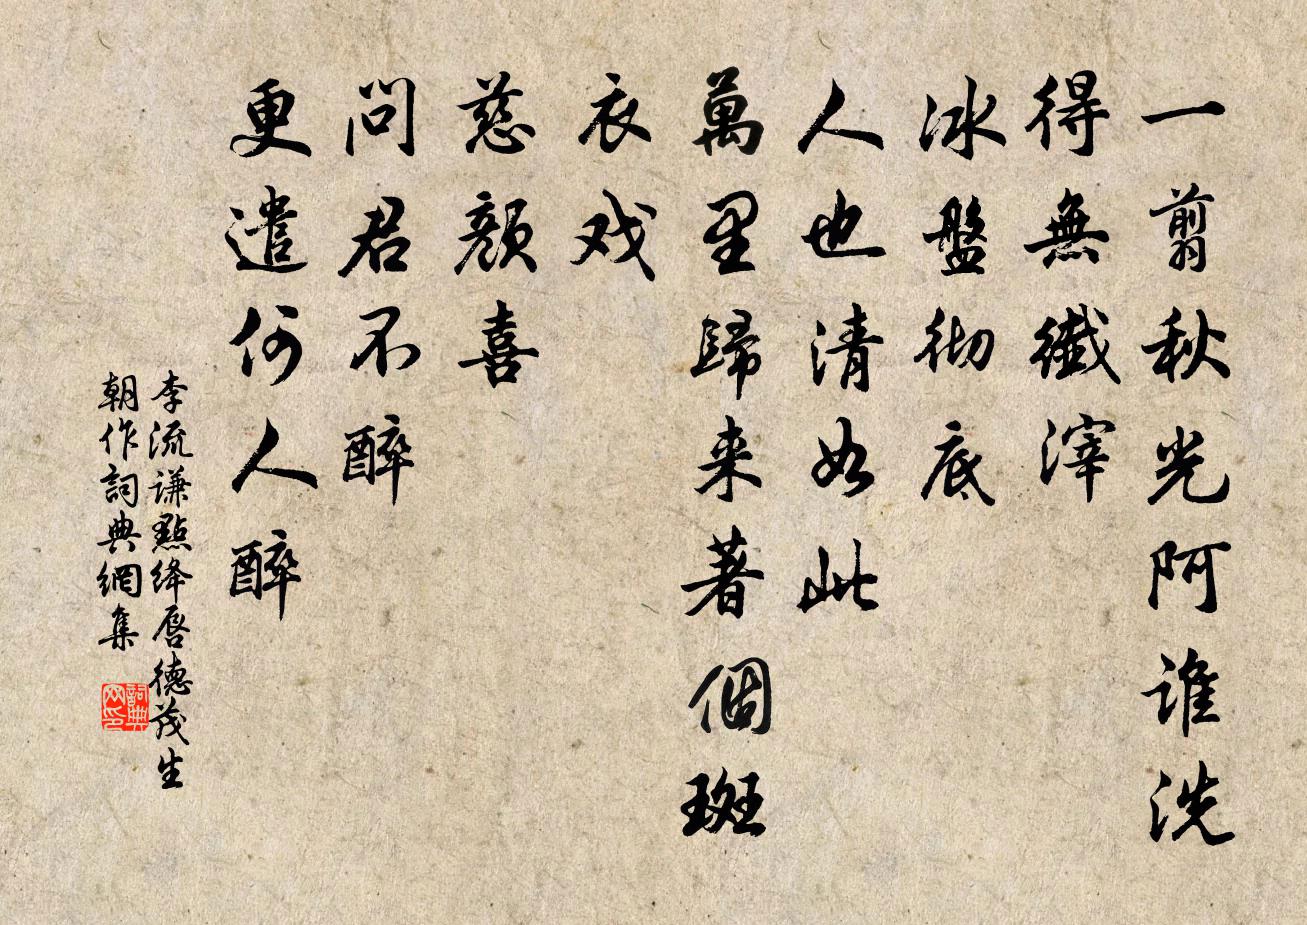 一翦秋光阿谁洗
得無纖滓
冰盤彻底
人也清如此
萬里歸来著個斑
衣戏
慈颜喜
問君不醉
更遣何人醉
李流谦點绛唇德茂生
朝作詞典網集
詞典网印